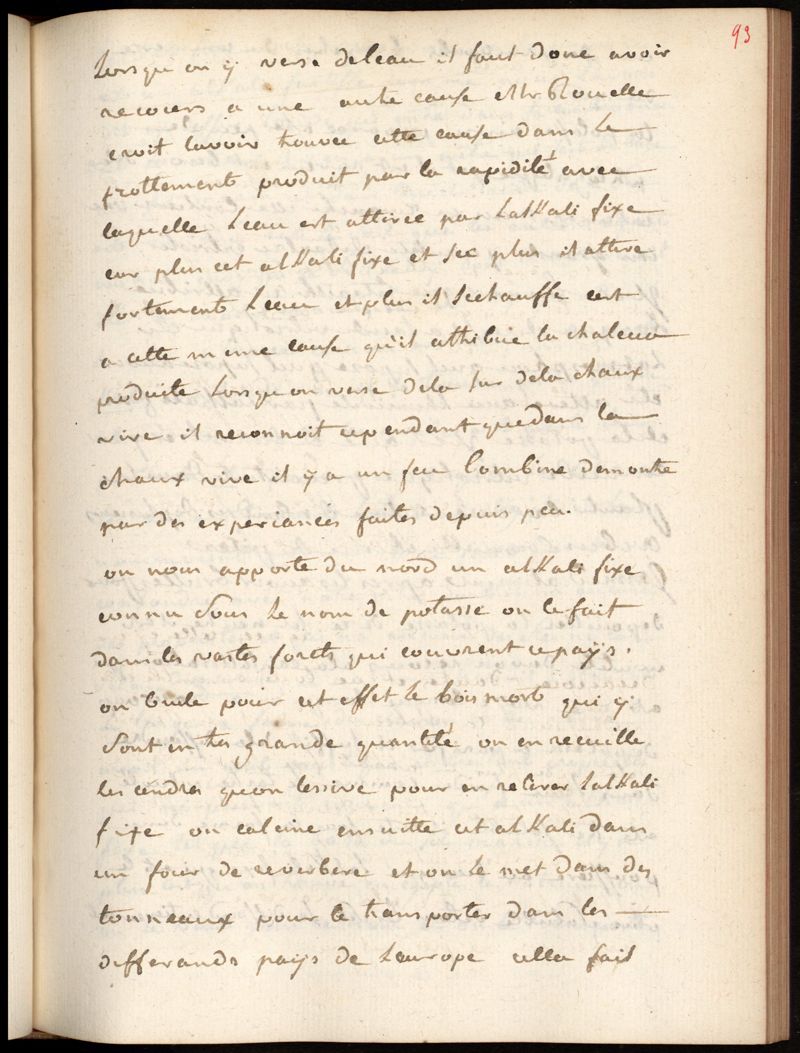 93
Lorsqu on y verse deleau il faut donc avoir
recours a une autre cause et Mr Rouelle
croit lavoir trouvee cette cause dans le
frottement produit par la rapidité avec
laquelle Leau est attiree par Lalkali fixe
car plus cet alkali fixe et sec plus il attire
fortement Leau et plus il Sechauffe cest
a cette meme cause qu'il attribue la chaleur
produite Lorsqu on verse dela sur dela chaux
vive il reconnoit cependant quedans la
chaux vive il y a un feu Combiné demontre
par des experiances faites depuis peu.
on nous apporte du nord un alkali fixe
connu Sous Le nom de potasse on le fait
dans les vastes forets qui couvrent ce pays.
on brule pour cet effet le bois mort qui y
Sont en tres grande quantité on en recuille
les cendres quon lessive pour en retirer Lalkali
fixe on calcine ensuitte cet alkali dans
un four de reverbere et on Le met dans des
tonneaux pour le transporter dans les
differands pays de Leurope cella fait